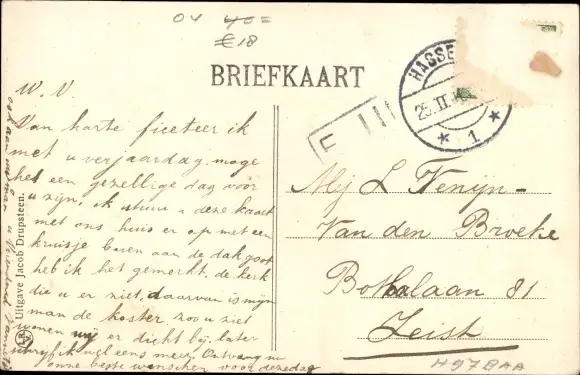 OV 40=
€18
BRIEFKAART
HASSE
25.II
1
F
W. V
Van harte ficeteer ik
met u verjaardag. moge
het een gezellige dag voor
u zijn, ik stuur u deze kaart
met ons huis er op met een
kruisje boven aan de dakgoot
heb ik het gemerkt. de kerk
die u er ziet, daarvan is mijn
man de koster, zou u ziet
wonen wij er dicht bij. later
schrijf ik wel eens meer. Ontvang nu
onne beste wenschen voor deze dag
Uitgave Jacob Drupsteen.
Mej L Venyn-
Van den Broeke
Bothalaan 81
Zeist
H97BAA